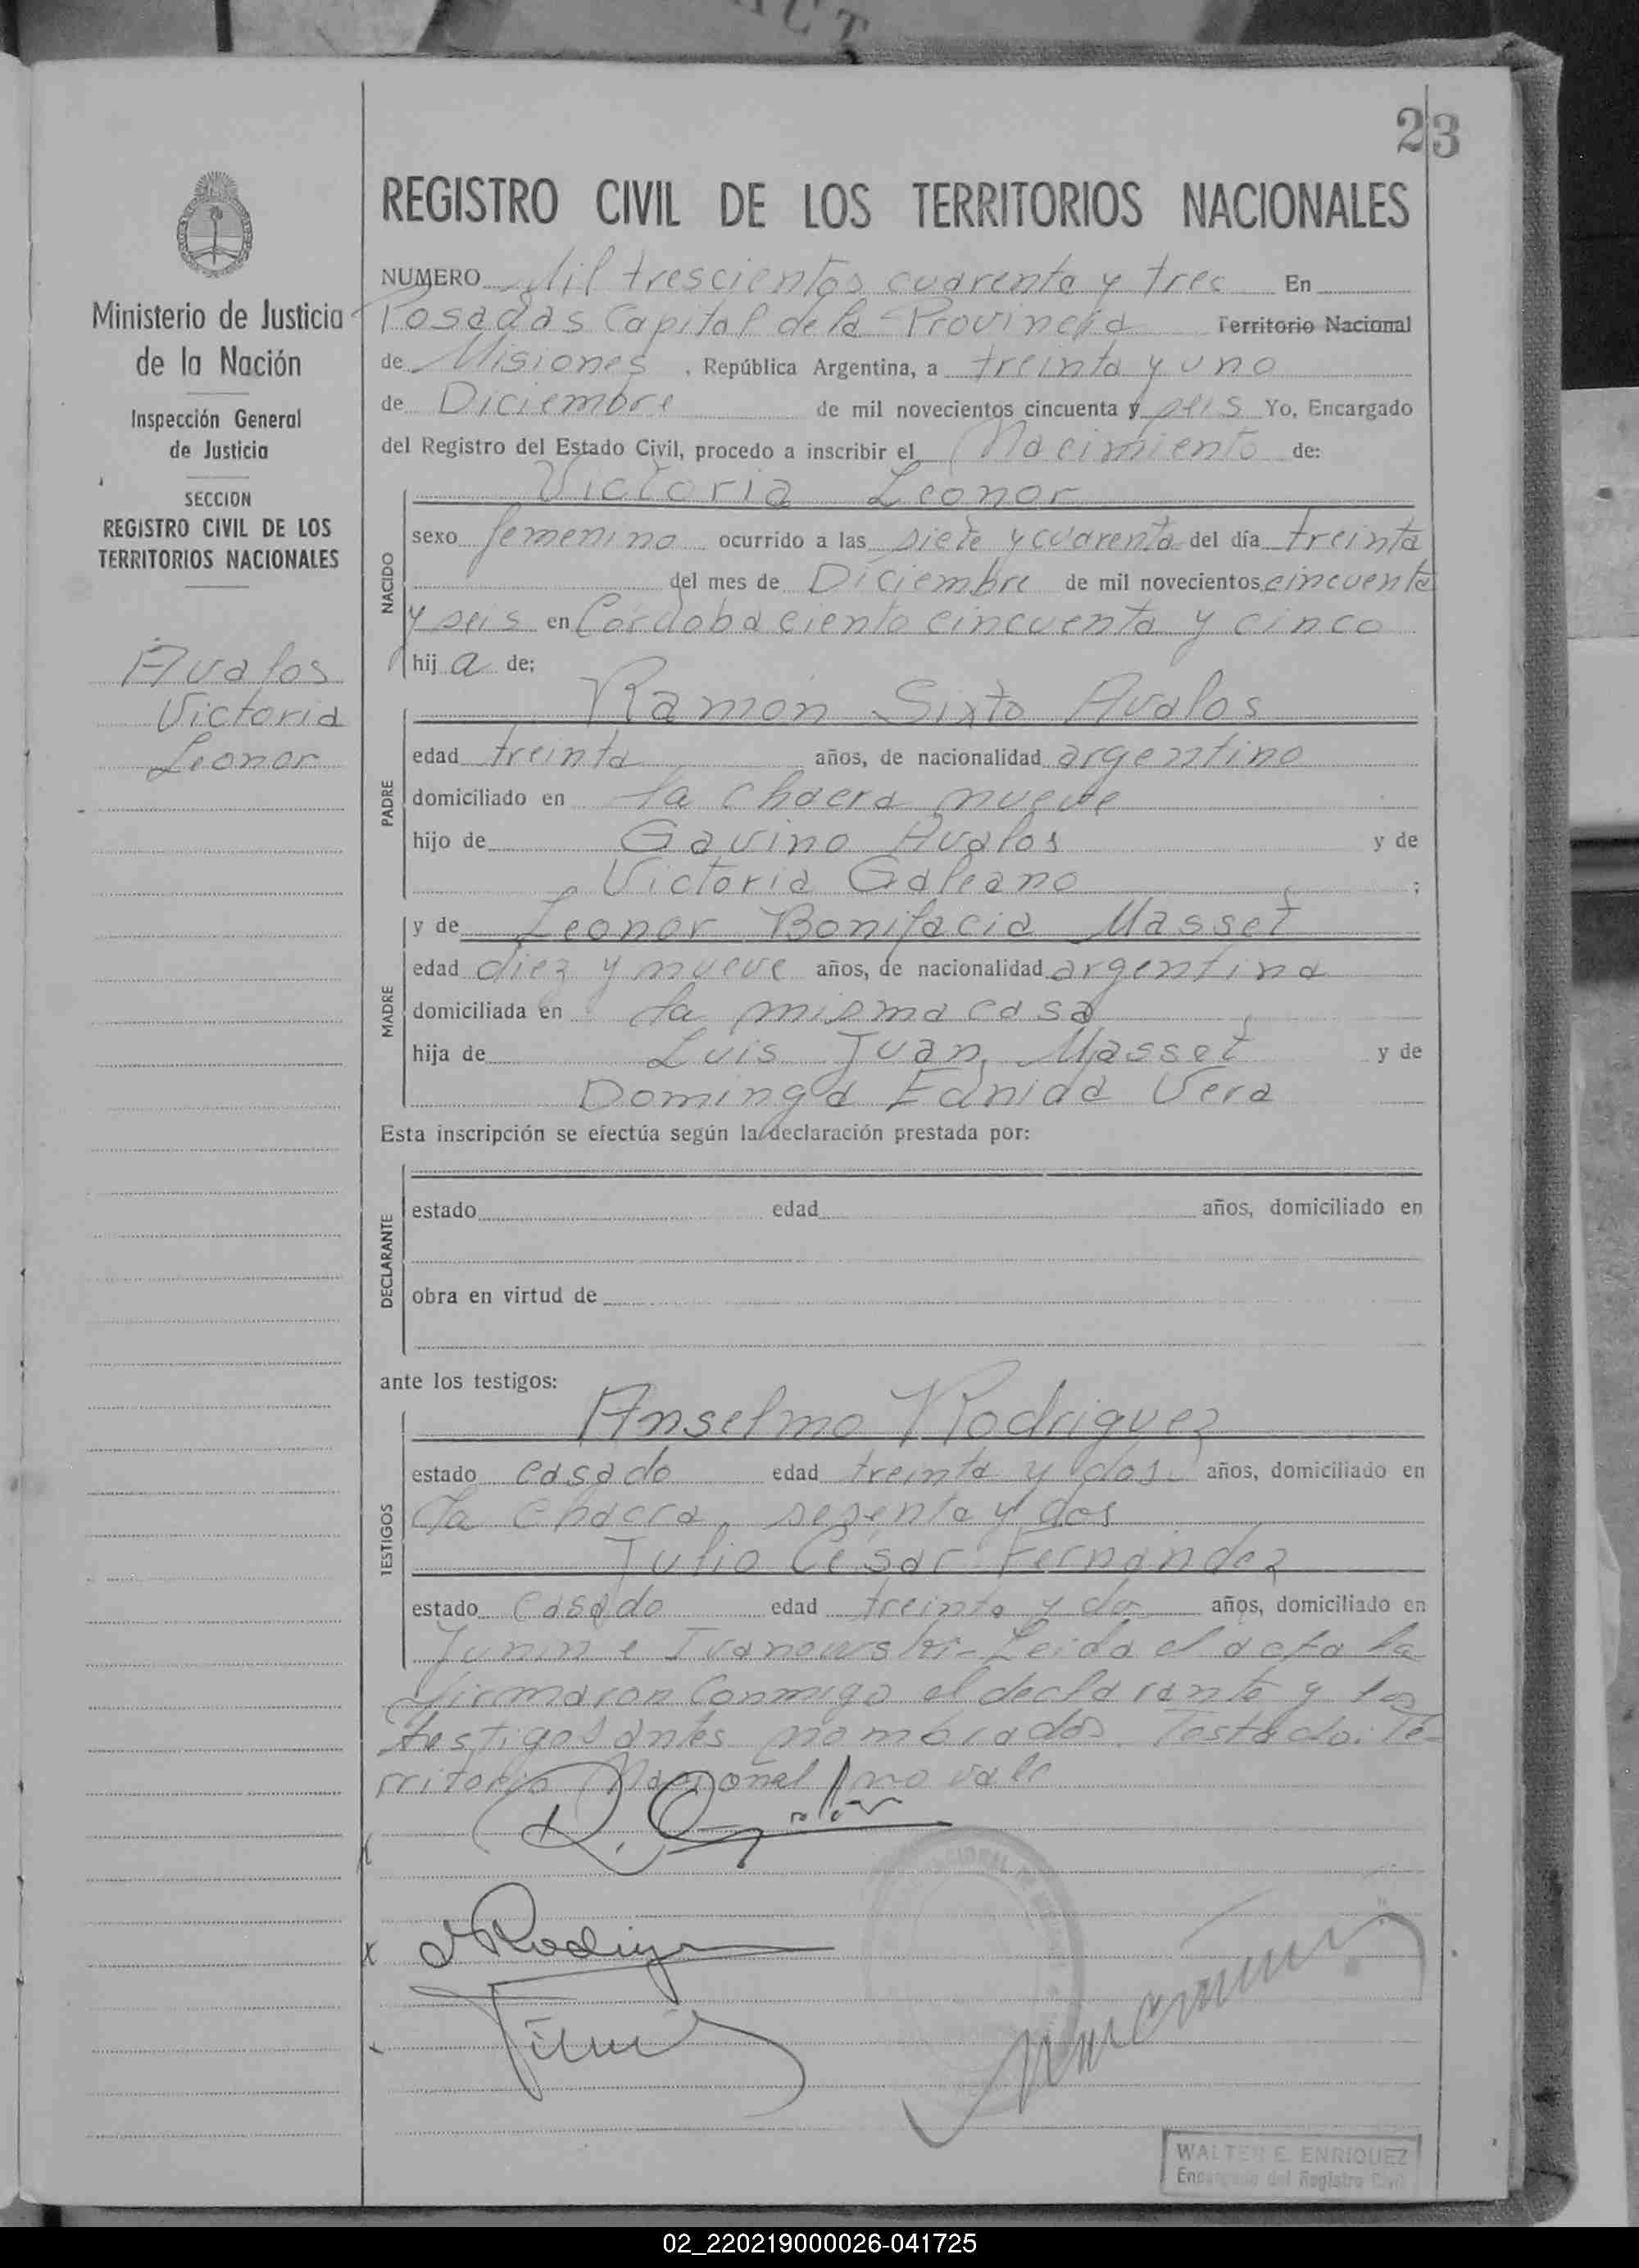 23
REGISTRO CIVIL DE LOS TERRITORIOS NACIONALES
Ministerio de Justicia
de la Nación
Inspección General
de Justicia
SECCION
REGISTRO CIVIL DE LOS
TERRITORIOS NACIONALES
Avalos
Victoria
Leonor
NUMERO Mil trescientos cuarenta y tres En
Posadas Capital de la Provincia Territorio Nacional
de Misiones, República Argentina, a treinta y uno
de Diciembre de mil novecientos cincuenta y seis Yo, Encargado
del Registro del Estado Civil, procedo a inscribir el Nacimiento de:
NACIDO
Victoria Leonor
sexo femenino ocurrido a las siete y cuarenta del día treinta
del mes de Diciembre de mil novecientos cincuenta
y seis en Córdoba ciento cincuenta y cinco
hija de:
PADRE
Ramón Sixto Avalos
edad treinta años, de nacionalidad argentino
domiciliado en la chacra nueve
hijo de Gavino Avalos y de
Victoria Galeano ;
MADRE
y de Leonor Bonifacia Masset
edad diez y nueve años, de nacionalidad argentina
domiciliada en la misma casa
hija de Luis Juan Masset y de
Dominga Vera
Esta inscripción se efectúa según la declaración prestada por:
DECLARANTE
estado edad años, domiciliado en
obra en virtud de
ante los testigos:
TESTIGOS
Anselmo Rodriguez
estado casado edad treinta y dos años, domiciliado en
la chacra sesenta y dos
Julio César Fernández
estado casado edad treinta y dos años, domiciliado en
Junin e Ivanowski - Leida el acta la
firmaron conmigo el declarante y los
testigos antes nombrados. Testado: Te-
rritorio Nacional / no vale
WALTER E. ENRIQUEZ
Encargado del Registro Civil
02_220219000026-041725